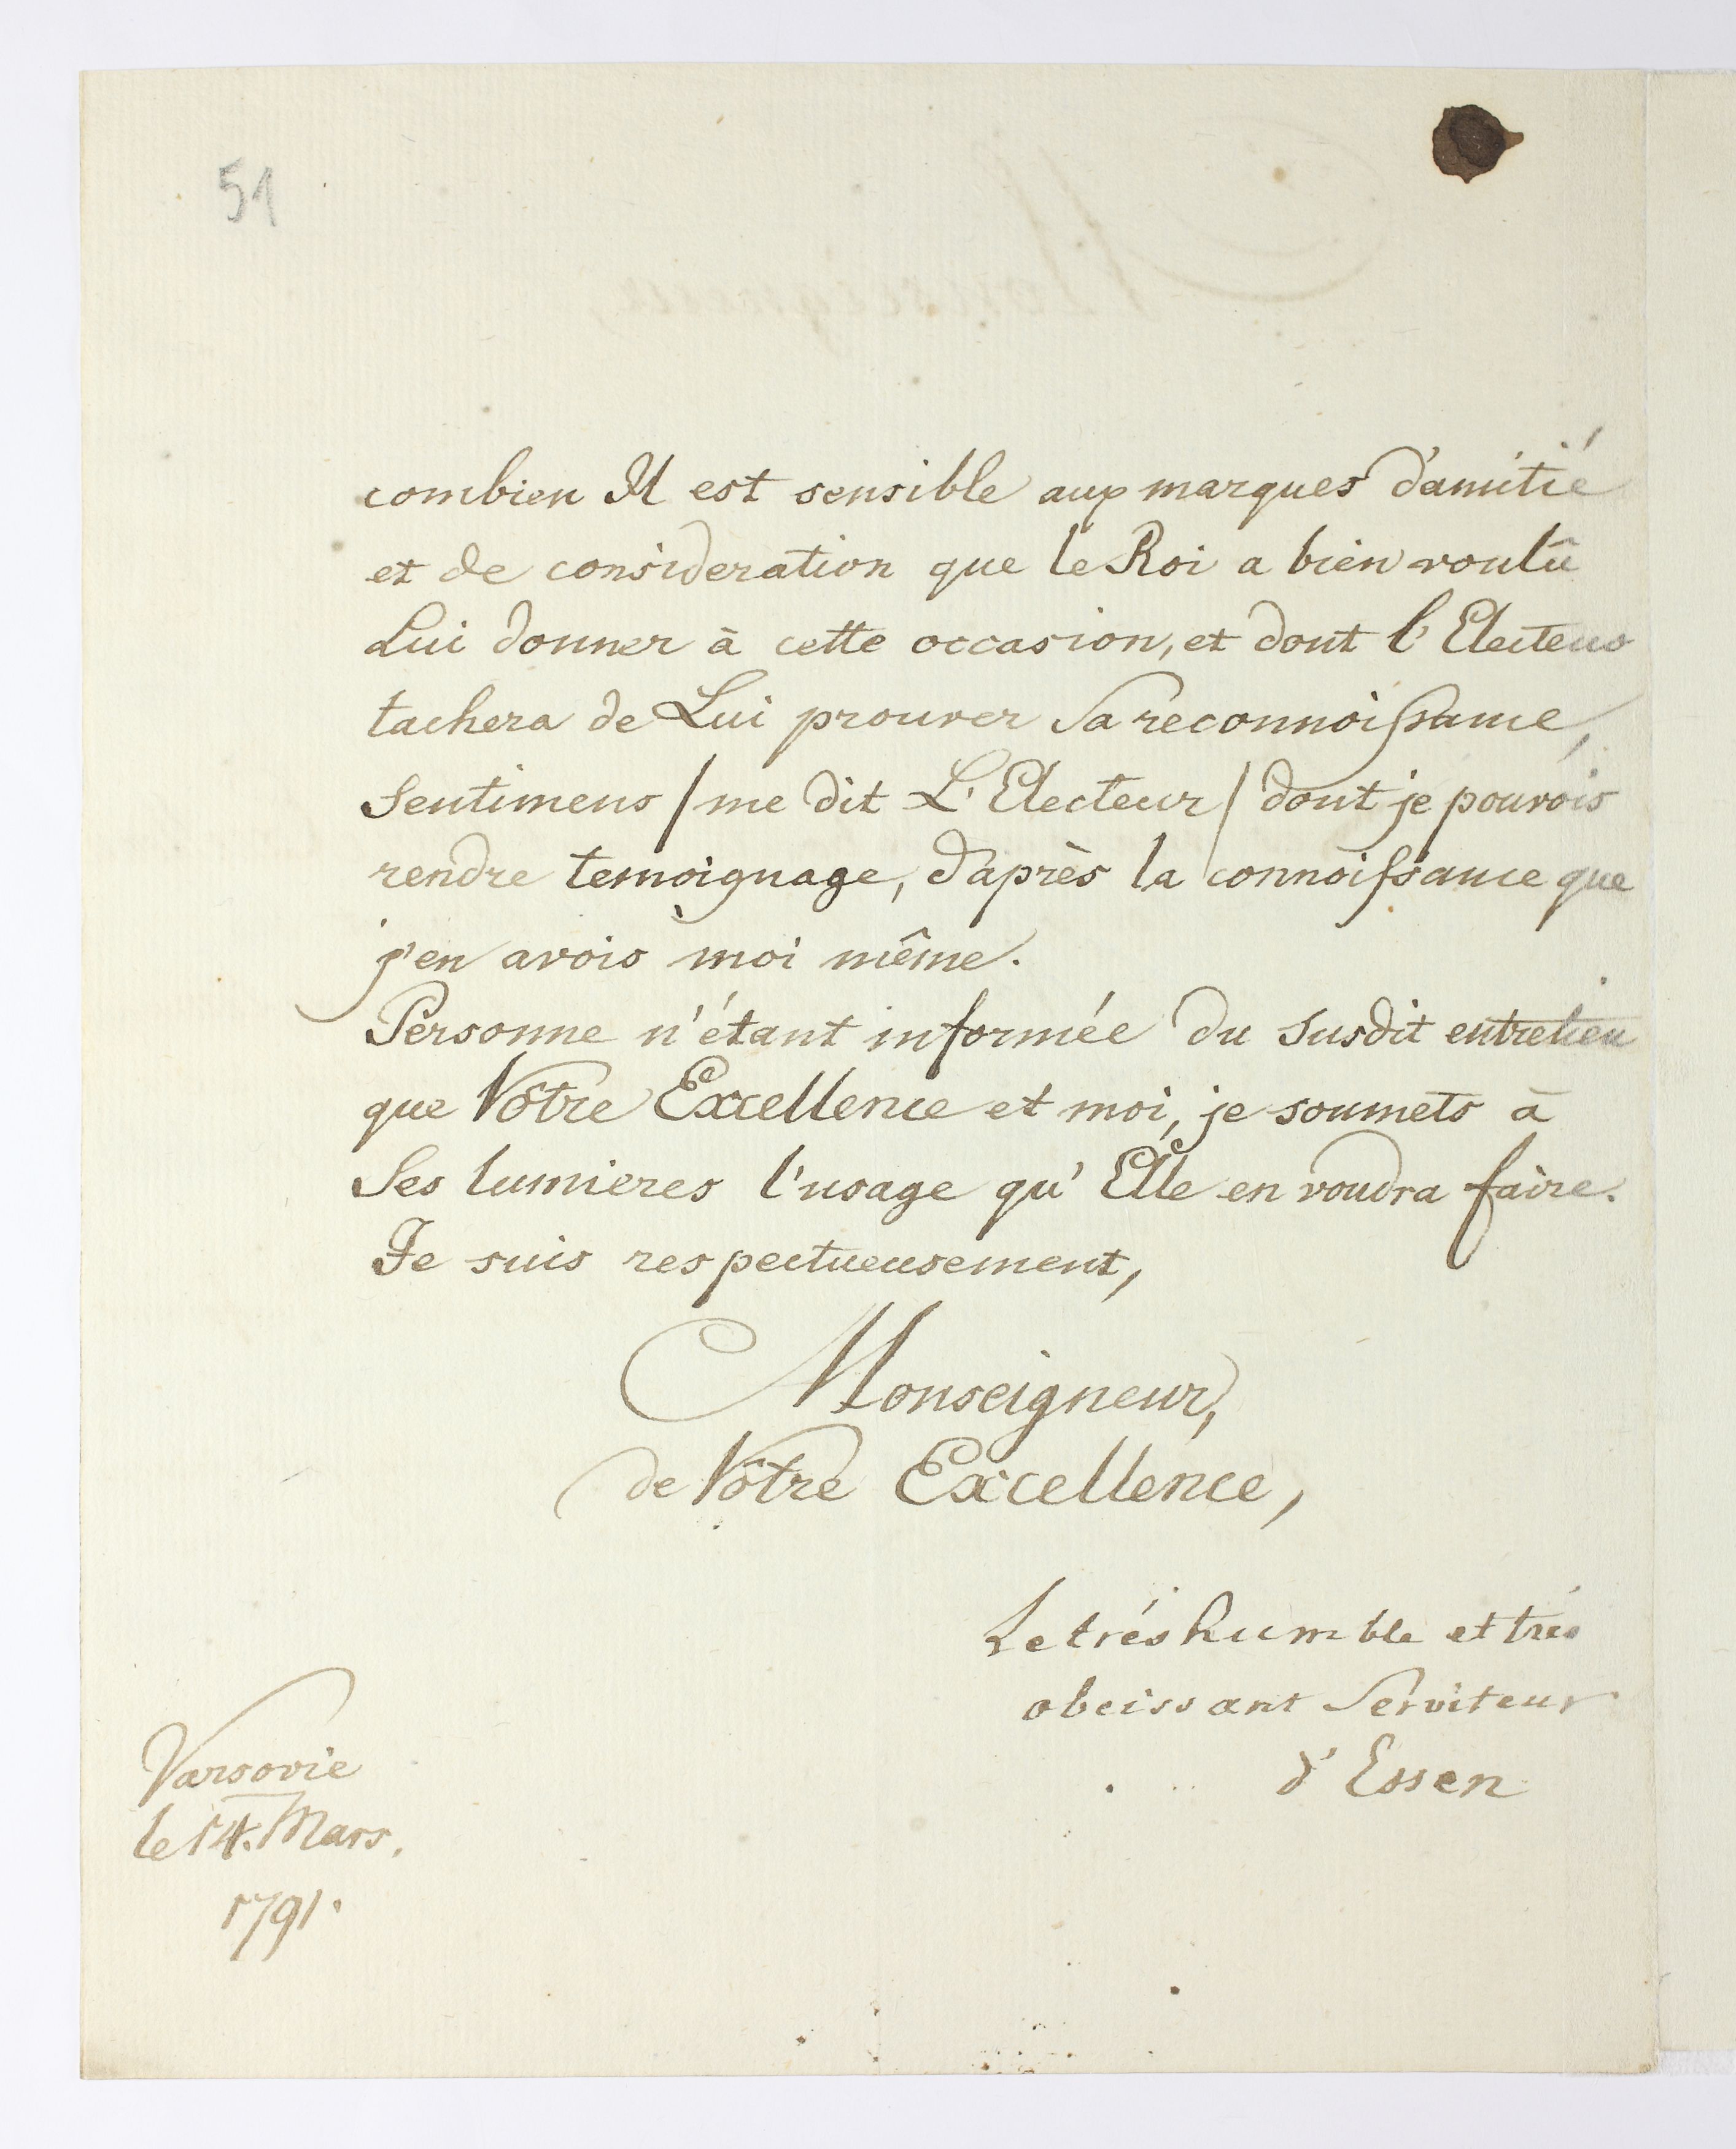 51
combien Il est sensible aux marques d'amitié
et de consideration que le Roi a bien voulû
Lui donner à cette occasion, et dont l'Electeur
tachera de Lui prouver Sa reconnoissance,
Sentimens / me dit L'Electeur / dont je pouvois
rendre temoignage, d'après la connoissance que
j'en avois moi même.
Personne n'étant informée du Susdit entretien
que Vôtre Excellence et moi, je soumets à
Ses lumieres l'usage qu'Elle en voudra faire.
Je suis respectueusement,
Monseigneur,
de Vôtre Excellence,
Le trés humble et trés
obeissant Serviteur
d'Essen
Varsovie
le 14. Mars.
1791.